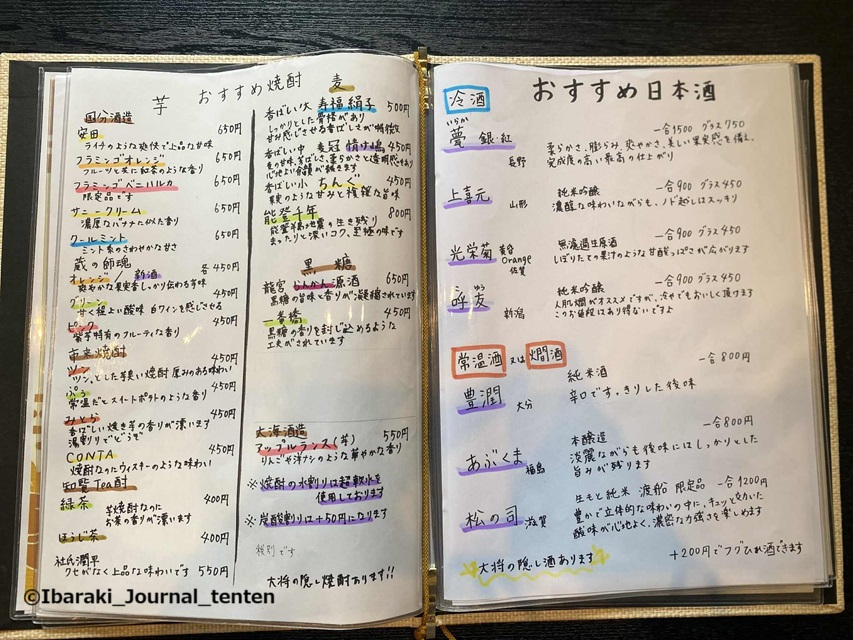 おすすめ焼酎
芋
国分酒造
安田 650円
ライチのような爽快で上品な甘味
フラミンゴオレンジ 650円
フルーツと共に紅茶のような香り
フラミンゴペニバルハ 650円
限定品です
サニークリーム 650円
濃厚なバナナに似た香り
クールミント 650円
ミント系のさわやかな甘さ
蔵の師魂
オレンジ/新酒 各450円
爽やかな果実香しっかり伝わる芋味
グリーン 450円
甘く程よい酸味 白ワインを感じさせる
ピンク 450円
紫芋特有のフルーティな香り
市来焼酎
ツン 450円
ツン、とした芋臭い焼酎 厚みのある味わい
ぷぅ 450円
常温だとスイートポテトのような香り
みとら 450円
香ばしい焼き芋の香りが漂います
湯割りでどうぞ
CONTA 450円
焼酎なのにウィスキーのような味わい
知覧Tea酎
緑茶 400円
芋焼酎なのに
お茶の香りが漂います
ほうじ茶 400円
杜氏潤平 550円
クセがなく上品な味わいです
麦
香ばしい大 寿福絹子 500円
しっかりとした骨格があり
甘み感じさせる香ばしさが特徴
香ばしい中 麦冠 情け嶋 450円
麦の甘味、芳ばしさ、柔らかさと透明感
心地よい余韻が続きます
香ばしい小 ちんぐ 450円
果実のような甘みと複雑な旨味
能登千年 800円
能登福地震の生き残り
まったりと深いコク、至極の味です
黒糖
龍宮 らんかん原酒 650円
黒糖の旨味と香りが凝縮されています
一番橋 450円
黒糖の香りを封じ込めるような
工夫がされています
大海酒造
アップルランス(芋) 550円
りんごや洋ナシのような華やかな香り
※焼酎の水割りは超軟水を
使用しております
※炭酸割りは+50円になります
税別です
大将の隠し焼酎あります!!
おすすめ日本酒
冷酒
いらか
甍 銀・紅 一合1500 グラス750
長野
柔らかさ、膨らみ、爽やかさ、美しい果実感を備え、
完成度の高い最高の仕上がり
上喜元 純米吟醸 一合900 グラス450
山形
濃醇な味わいながらも、ノド越しはスッキリ
光栄菊 黄昏Orange 無濾過生原酒 一合900 グラス450
佐賀
しぼりたての果汁のような甘酸っぱさが広がります
友 純米吟醸 一合900 グラス450
新潟
人肌燗がオススメですが、冷やでもおいしく頂けます
このお値段はあり得ないですよ
常温酒 又は 燗酒
豊潤 純米酒 一合800円
大分
辛口です。きりした後味
あぶくま 本醸造 一合800円
福島
淡麗ながらも後味にはしっかりとした
旨みが残ります
松の司 生もと純米 渡船 限定品 一合1200円
滋賀
豊かで立体的な味わいの中に、キュッと効いた
酸味が心地よく、濃密な力強さを楽しめます
大将の隠し酒あります
+200円でフグひれ酒できます
©Ibaraki_Journal_tenten